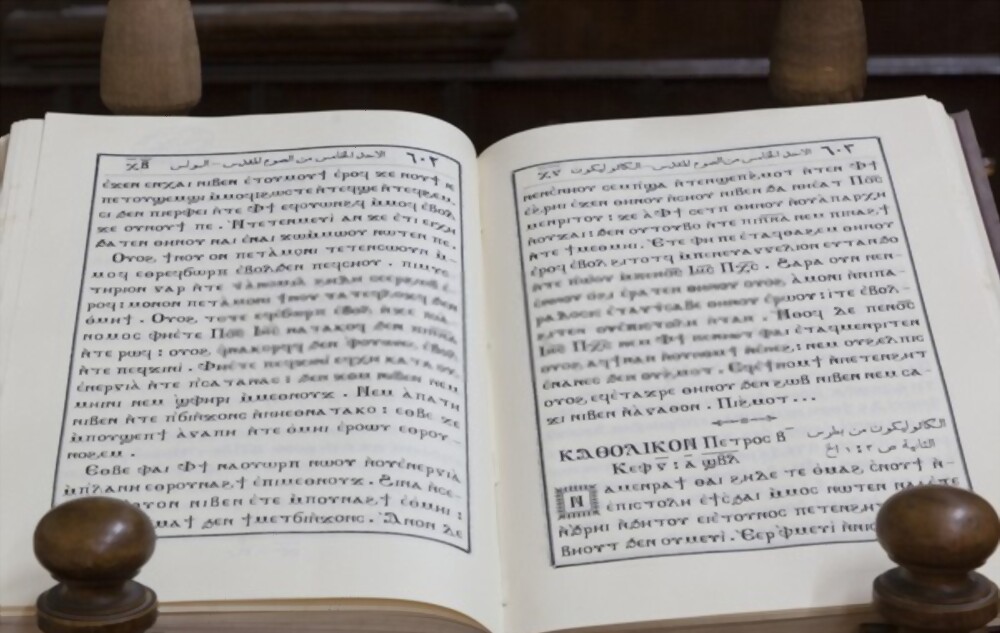 ⲭ̅ⲃ̅ الاحد الخامس من الصوم المقدس - البولس ٦٠٢
ⲉϫⲉⲛ ⲉⲛⲭⲁⲓ ⲛⲓⲃⲉⲛ ⲉⲧⲟⲩⲙⲟⲩϯ ⲉⲣⲟϥ ϫⲉ ⲛⲟⲩϯ ⲓⲉ
ⲡⲉⲧⲟⲩϣⲉⲙϣⲓ ⲙ̀ⲙⲟϥ ϩⲱⲥⲧⲉ ⲛ̀ⲧⲉϥϣⲉ ⲛ̀ⲧⲉϥϩⲉⲙ-
ⲥⲓ ϧⲉⲛ ⲡⲓⲉⲣⲫⲉⲓ ⲛ̀ⲧⲉ ⲫϯ ⲉϥⲟⲩⲱⲛϩ ⲙ̀ⲙⲟϥ ⲉ̀ⲃⲟⲗ
ϫⲉ ⲟⲩⲛⲟⲩϯ ⲡⲉ. Ⲛ̀ⲧⲉⲧⲉⲛⲙⲉⲩⲓ̀ ⲁⲛ ϫⲉ ⲉ̀ⲧⲓ ⲉⲓⲭⲏ
ϧⲁⲧⲉⲛ ⲑⲏⲛⲟⲩ ⲛⲁⲓ ⲉ̀ⲛⲁⲓϫⲱ ⲙ̀ⲙⲱⲟⲩ ⲛⲱⲧⲉⲛ ⲡⲉ.
Ⲟⲩⲟϩ ϯⲛⲟⲩ ⲟⲛ ⲡⲉⲧⲁ̀ⲙⲟⲛⲓ ⲧⲉⲧⲉⲛⲥⲱⲟⲩⲛ ⲙ̀-
ⲙⲟϥ ⲉⲑⲣⲉϥϭⲱⲣⲡ ⲉ̀ⲃⲟⲗ ϧⲉⲛ ⲡⲉϥⲥⲏⲟⲩ. ⲡⲓⲙⲩⲥ-
ⲧⲏⲣⲓⲟⲛ ⲅⲁⲣ ⲛ̀ⲧⲉ
ⲣⲟϥ: ⲙⲟⲛⲟⲛ ⲡⲉⲧⲁ̀ⲙⲟⲛⲓ ϯⲛⲟⲩ ϧⲉⲛ
ⲑⲙⲏϯ. Ⲟⲩⲟϩ ⲧⲟⲧⲉ ⲉ̀ⲃⲟⲗ
ⲛⲟⲙⲟⲥ ⲫⲏⲉ̀ⲧⲉ Ⲡⲟ̅ⲥ̅ Ⲓⲏ̅ⲥ̅ ⲛⲁⲧⲁⲕⲟϥ ϧⲉⲛ ⲡⲓⲡ̅ⲛ̅ⲁ̅
ⲛ̀ⲧⲉ ⲣⲱϥ: ⲟⲩⲟϩ ϥⲛⲁⲕⲟⲣϥϥ ϧⲉⲛ ⲫⲟⲩⲱⲛϩ ⲉ̀ⲃⲟⲗ
ⲛ̀ⲧⲉ ⲡⲉϥϫⲓⲛⲓ̀. Ⲫⲏⲉ̀ⲧⲉ ⲡⲉϥϫⲓⲛⲓ̀ ⲉϥⲭⲏ ⲕⲁⲧⲁ ⲟⲩ-
ⲉ̀ⲛⲉⲣⲅⲓⲁ̀ ⲛ̀ⲧⲉ ⲡ̀ⲥⲁⲧⲁⲛⲁⲥ: ϧⲉⲛ ϫⲟⲙ ⲛⲓⲃⲉⲛ ⲛⲉⲙ
ⲙⲏⲓⲛⲓ ⲛⲉⲙ ϣ̀ⲫⲏⲣⲓ ⲙ̀ⲙⲉⲑⲛⲟⲩϫ. Ⲛⲉⲙ ⲁ̀ⲡⲁⲧⲏ
ⲛⲓⲃⲉⲛ ⲛ̀ⲧⲉ ⲡ̀ϭⲓⲛϫⲟⲛⲥ ⲛ̀ⲛⲏⲉⲑⲛⲁⲧⲁⲕⲟ: ⲉⲑⲃⲉ ϫⲉ
ⲙ̀ⲡⲟⲩϣⲉⲡ ϯⲁⲅⲁⲡⲏ ⲛ̀ⲧⲉ ⲑⲙⲏⲓ ⲉ̀ⲣⲱⲟⲩ ⲉⲑⲣⲟⲩ-
ⲛⲟϩⲉⲙ.
Ⲉⲑⲃⲉ ⲫⲁⲓ ⲫϯ ⲛⲁⲟⲩⲱⲣⲡ ⲛⲱⲟⲩ ⲛ̀ⲟⲩⲉ̀ⲛⲉⲣⲅⲓⲁ̀
ⲙ̀ⲡⲗⲁⲛⲏ ⲉⲑⲣⲟⲩⲛⲁϩϯ ⲉ̀ⲡⲓⲙⲉⲑⲛⲟⲩϫ. Ϩⲓⲛⲁ ⲛ̀ⲥⲉ-
ⲟⲩⲟⲛ ⲛⲓⲃⲉⲛ ⲉ̀ⲧⲉ ⲙ̀ⲡⲟⲩⲛⲁϩϯ ⲉ̀ⲑⲙⲏⲓ:
ⲙⲁϯ ϧⲉⲛ ϯⲙⲉⲧϭⲓⲛϫⲟⲛⲥ. Ⲁ̀ⲛⲟⲛ ⲇⲉ
ⲭ̅ⲅ̅ الاحد الخامس من الصوم المقدس - الكاثوليكون ٦٠٣
ⲛⲉⲛⲥⲛⲏⲟⲩ ⲥⲉⲙⲡ̀ϣⲁ ⲛ̀ⲧⲉⲛϣⲉⲡϩ̀ⲙⲟⲧ ⲛ̀ⲧⲉⲛ ⲫϯ
ⲉ̀ϩⲣⲏⲓ ⲉ̀ϫⲉⲛ ⲑⲏⲛⲟⲩ ⲛ̀ⲥⲏⲟⲩ ⲛⲓⲃⲉⲛ ϧⲁ ⲛⲏⲉ̀ⲧⲁ Ⲡⲟ̅ⲥ̅
ⲙⲉⲛⲣⲓⲧⲟⲩ: ϫⲉ ⲁ̀ ⲫϯ ⲥⲉⲧⲡ ⲑⲏⲛⲟⲩ ⲛ̀ⲟⲩⲁ̀ⲡⲁⲣⲭⲏ
ⲛ̀ⲟⲩϫⲁⲓ: ϧⲉⲛ ⲟⲩⲧⲟⲩⲃⲟ ⲛ̀ⲧⲉ ⲡⲓⲡ̅ⲛ̅ⲁ̅ ⲛⲉⲙ ⲡⲓⲛⲁϩϯ
ⲛ̀ⲧⲉ ϯⲙⲉⲑⲙⲏⲓ. Ⲉ̀ⲧⲉ ⲫⲏ ⲡⲉ ⲉ̀ⲧⲁϥⲑⲁϩⲉⲙ ⲑⲏⲛⲟⲩ
ⲉ̀ⲣⲟϥ ⲉ̀ⲃⲟⲗ ϩⲓⲧⲟⲧϥ ⲙ̀ⲡⲉⲛⲉⲩⲁⲅⲅⲉⲗⲓⲟⲛ ⲉⲩⲧⲁⲛϧⲟ
ⲛ̀ⲧⲉ ⲡ̀ⲱ̀ⲟⲩ ⲙ̀ⲡⲉⲛⲟ̅ⲥ̅ Ⲓⲏ̅ⲥ̅ Ⲡⲭ̅ⲥ̅. Ϩⲁⲣⲁ ⲟⲩⲛ ⲛⲉⲛ-
ⲥⲛⲏⲟⲩ ⲟ̀ϩⲓ ⲉ̀ⲣⲁⲧⲉⲛ ⲑⲏⲛⲟⲩ ⲟⲩⲟϩ ⲁ̀ⲙⲟⲛⲓ ⲛ̀ⲛⲓⲡⲁ-
ⲣⲁⲇⲟⲥⲓⲥ ⲉ̀ⲧⲁⲩⲧⲥⲁⲃⲉ ⲑⲏⲛⲟⲩ ⲉ̀ⲣⲱⲟⲩ: ⲓⲧⲉ ⲉ̀ⲃⲟⲗ-
ϩⲓⲧⲉⲛ ⲟⲩⲉ̀ⲡⲓⲥⲧⲟⲗⲏ ⲛ̀ⲧⲁⲛ. Ⲛ̀ⲑⲟϥ ⲇⲉ ⲡⲉⲛⲟ̅ⲥ̅
Ⲓⲏ̅ⲥ̅ Ⲡⲭ̅ⲥ̅ ⲛⲉⲙ ⲫϯ ⲡⲉⲛⲓⲱⲧ ⲫⲁⲓ ⲉ̀ⲧⲁϥⲙⲉⲛⲣⲓⲧⲉⲛ
ⲟⲩⲟϩ ⲁϥϯ ⲛⲁⲛ ⲛ̀ⲟⲩⲛⲟⲙϯ ⲛ̀ⲉ̀ⲛⲉϩ: ⲛⲉⲙ ⲟⲩϩⲉⲗⲡⲓⲥ
ⲉ̀ⲛⲁⲛⲉⲥ ϧⲉⲛ ⲟⲩϩ̀ⲙⲟⲧ. Ⲉϥⲉ̀ϯⲛⲟⲙϯ ⲙ̀ⲡⲉⲧⲉⲛϩⲏⲧ
ⲟⲩⲟϩ ⲉϥⲉ̀ⲧⲁϫⲣⲉ ⲑⲏⲛⲟⲩ ϧⲉⲛ ϩⲱⲃ ⲛⲓⲃⲉⲛ ⲛⲉⲙ ⲥⲁ-
ϫⲓ ⲛⲓⲃⲉⲛ ⲛ̀ⲁⲅⲁⲑⲟⲛ. Ⲡⲓϩ̀ⲙⲟⲧ...
ⲔⲀⲐⲞⲖⲒⲔⲞⲚ Ⲡⲉⲧⲣⲟⲥ ⲃ̅ الكاثوليكون من بطرس
Ⲕⲉⲫ ⲅ̅: ⲁ̅ ϣⲃⲗ الثانية ص ٣: ١ الخ
Ⲛ ⲁⲙⲉⲛⲣⲁϯ ⲑⲁⲓ ϩⲏⲇⲉ ⲧⲉ ⲑⲙⲁϩ ⲥ̀ⲛⲟⲩϯ ⲛ̀-
ⲉ̀ⲡⲓⲥⲧⲟⲗⲏ ⲉ̀ϯⲥ̀ϧⲁⲓ ⲙ̀ⲙⲟⲥ ⲛⲱⲧⲉⲛ
ⲛ̀ϧ̀ⲣⲏⲓ ⲛ̀ϧⲏⲧⲟⲩ ⲉⲓⲉ̀ⲧⲟⲩⲛⲟⲥ ⲡⲉⲧⲉⲛϩⲏⲧ
ⲃⲏⲟⲩⲧ ϧⲉⲛ ⲟⲩⲙⲉⲩⲓ̀. Ⲉ̀ⲉⲣⲫ̀ⲙⲉⲩⲓ̀